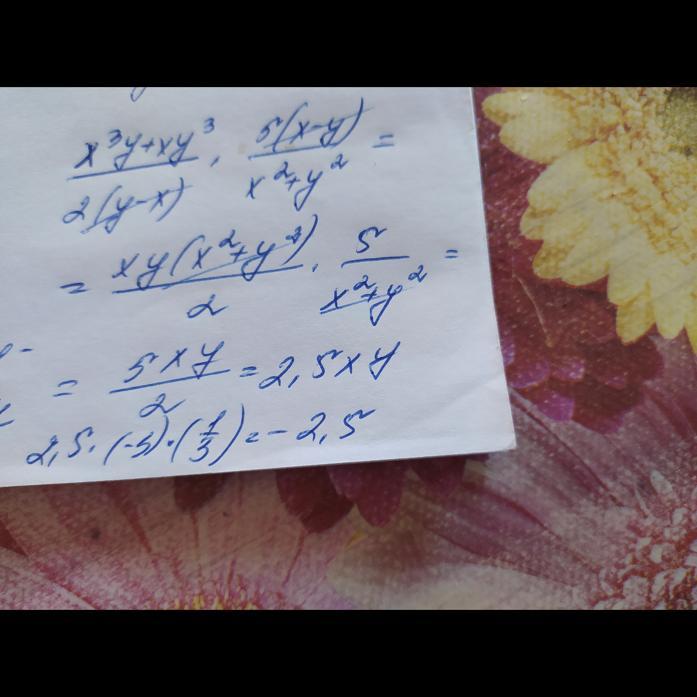 x³y+xy³ / 2(y-x) · 5(x-y) / x²+y² =
= xy(x²+y²) / 2 · 5 / x²+y² =
= 5xy / 2 = 2,5xy
2,5·(-3)·(1/3)=-2,5